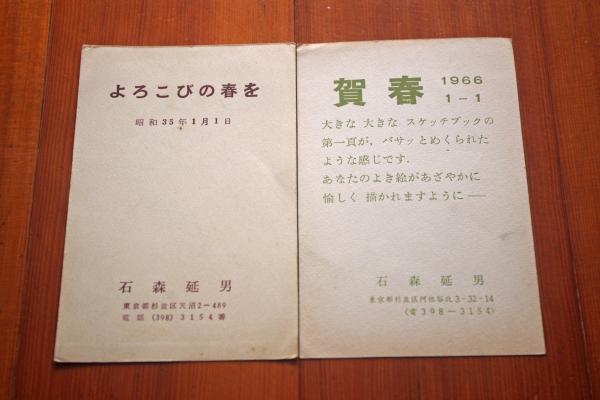 よろこびの春を
昭和35年1月1日
石森延男
東京都杉並区天沼2-489
電話 (398) 3154番
賀春 1966
1-1
大きな 大きな スケッチブックの
第一頁が，バサッとめくられた
ような感じです．
あなたのよき絵があざやかに
愉しく 描かれますように──
石森延男
東京都杉並区阿佐谷北3-32-14
(電398-3154)